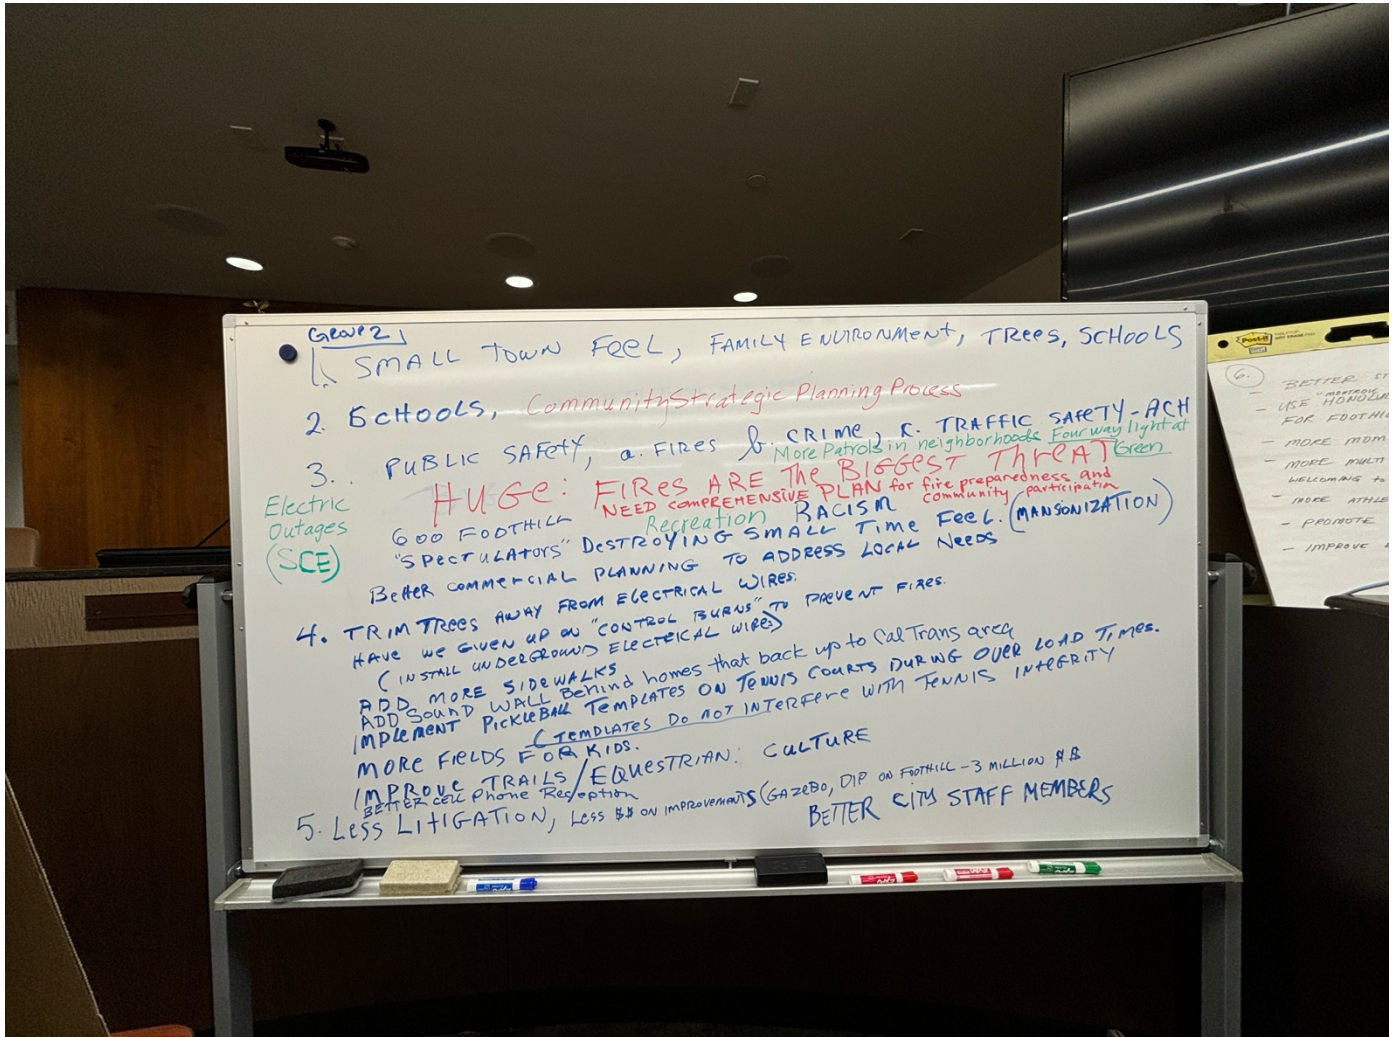 GROUP 2
1. SMALL TOWN FEEL, FAMILY ENVIRONMENT, TREES, SCHOOLS
2. SCHOOLS, Community Strategic Planning Process
3. PUBLIC SAFETY, a. FIRES b. CRIME, c. TRAFFIC SAFETY-ACH
More Patrols in neighborhoods Four way light at
Green
HUGE: FIRES ARE THE BIGGEST THREAT
NEED COMPREHENSIVE PLAN for fire preparedness and
community participation
Electric
Outages
(SCE)
600 FOOTHILL Recreation RACISM
"SPECTULATORS" DESTROYING SMALL TIME FEEL. (MANSONIZATION)
BETTER COMMERCIAL PLANNING TO ADDRESS LOCAL NEEDS
4. TRIM TREES AWAY FROM ELECTRICAL WIRES.
HAVE WE GIVEN UP ON "CONTROL BURNS" TO PREVENT FIRES.
(INSTALL UNDERGROUND ELECTRICAL WIRES)
ADD MORE SIDEWALKS
ADD SOUND WALL Behind homes that back up to CalTrans area
IMPLEMENT PICKLEBALL TEMPLATES ON TENNIS COURTS DURING OVER LOAD TIMES.
(TEMPLATES DO NOT INTERFERE WITH TENNIS INTEGRITY
MORE FIELDS FOR KIDS.
IMPROVE TRAILS/EQUESTRIAN: CULTURE
BETTER CELL Phone Reception
5. LESS LITIGATION, LESS $$ ON IMPROVEMENTS (GAZEBO, DIP ON FOOTHILL - 3 MILLION $$
BETTER CITY STAFF MEMBERS
Post-it
6.
- BETTER ST
- USE HONOLU
FOR FOOTHI
- MORE MOM
- MORE MULTI
WELCOMING to
- MORE ATHLE
- PROMOTE
- IMPROVE